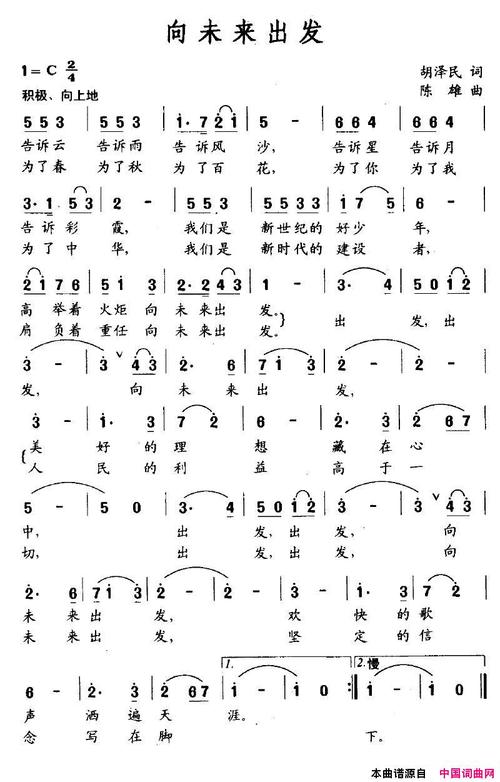 向未来出发
1=C 2/4
胡泽民 词
积极、向上地
陈雄 曲
5 5 3 | 5 5 3 | 1· 7 2 1 | 5 - | 6 6 4 | 6 6 4 |
告诉云 告诉雨 告诉风 沙, 告诉星 告诉月
为了春 为了秋 为了百 花, 为了你 为了我
3· 1 5 3 | 2 - | 5 5· 3 | 2 2 3 2 1 | 1 7 5 | 6 - |
告诉彩霞, 我们是 新世纪的 好少年,
为了中华, 我们是 新时代的 建设者,
2 1 7 6 | 5 1 3 | 2· 2 4 3 | 1 - | 3· 4 | 5 0 1 2 |
高举着 火炬向 未来出发。 出发,出
肩负着 重任向 未来出发。
3 - | 3 4 3 | 2· 6 | 7 1 3 | 2 - | 2 - |
发, 向未来出发,
3 - | 1· 3 | 7 5 | 6 - | 3· 2 | 2 6 7 |
美好的理想藏在心
人民的利益高于一
5 - | 5 0 | 3· 4 | 5 0 1 2 | 3 - | 3 4 3 |
中, 出发,出发, 向
切, 出发,出发, 向
2· 6 | 7 1 3 | 2 - | 2 - | 3· 2 | 1 3 |
未来出发, 欢快的歌
未来出发, 坚定的信
1. 2.慢
6 - | 2· 3 | 2 6 7 | 1 - | 1 0 :| 1 - | 1 0 ‖
声洒遍天涯。
念写在脚下。
本曲谱源自 中国词曲网